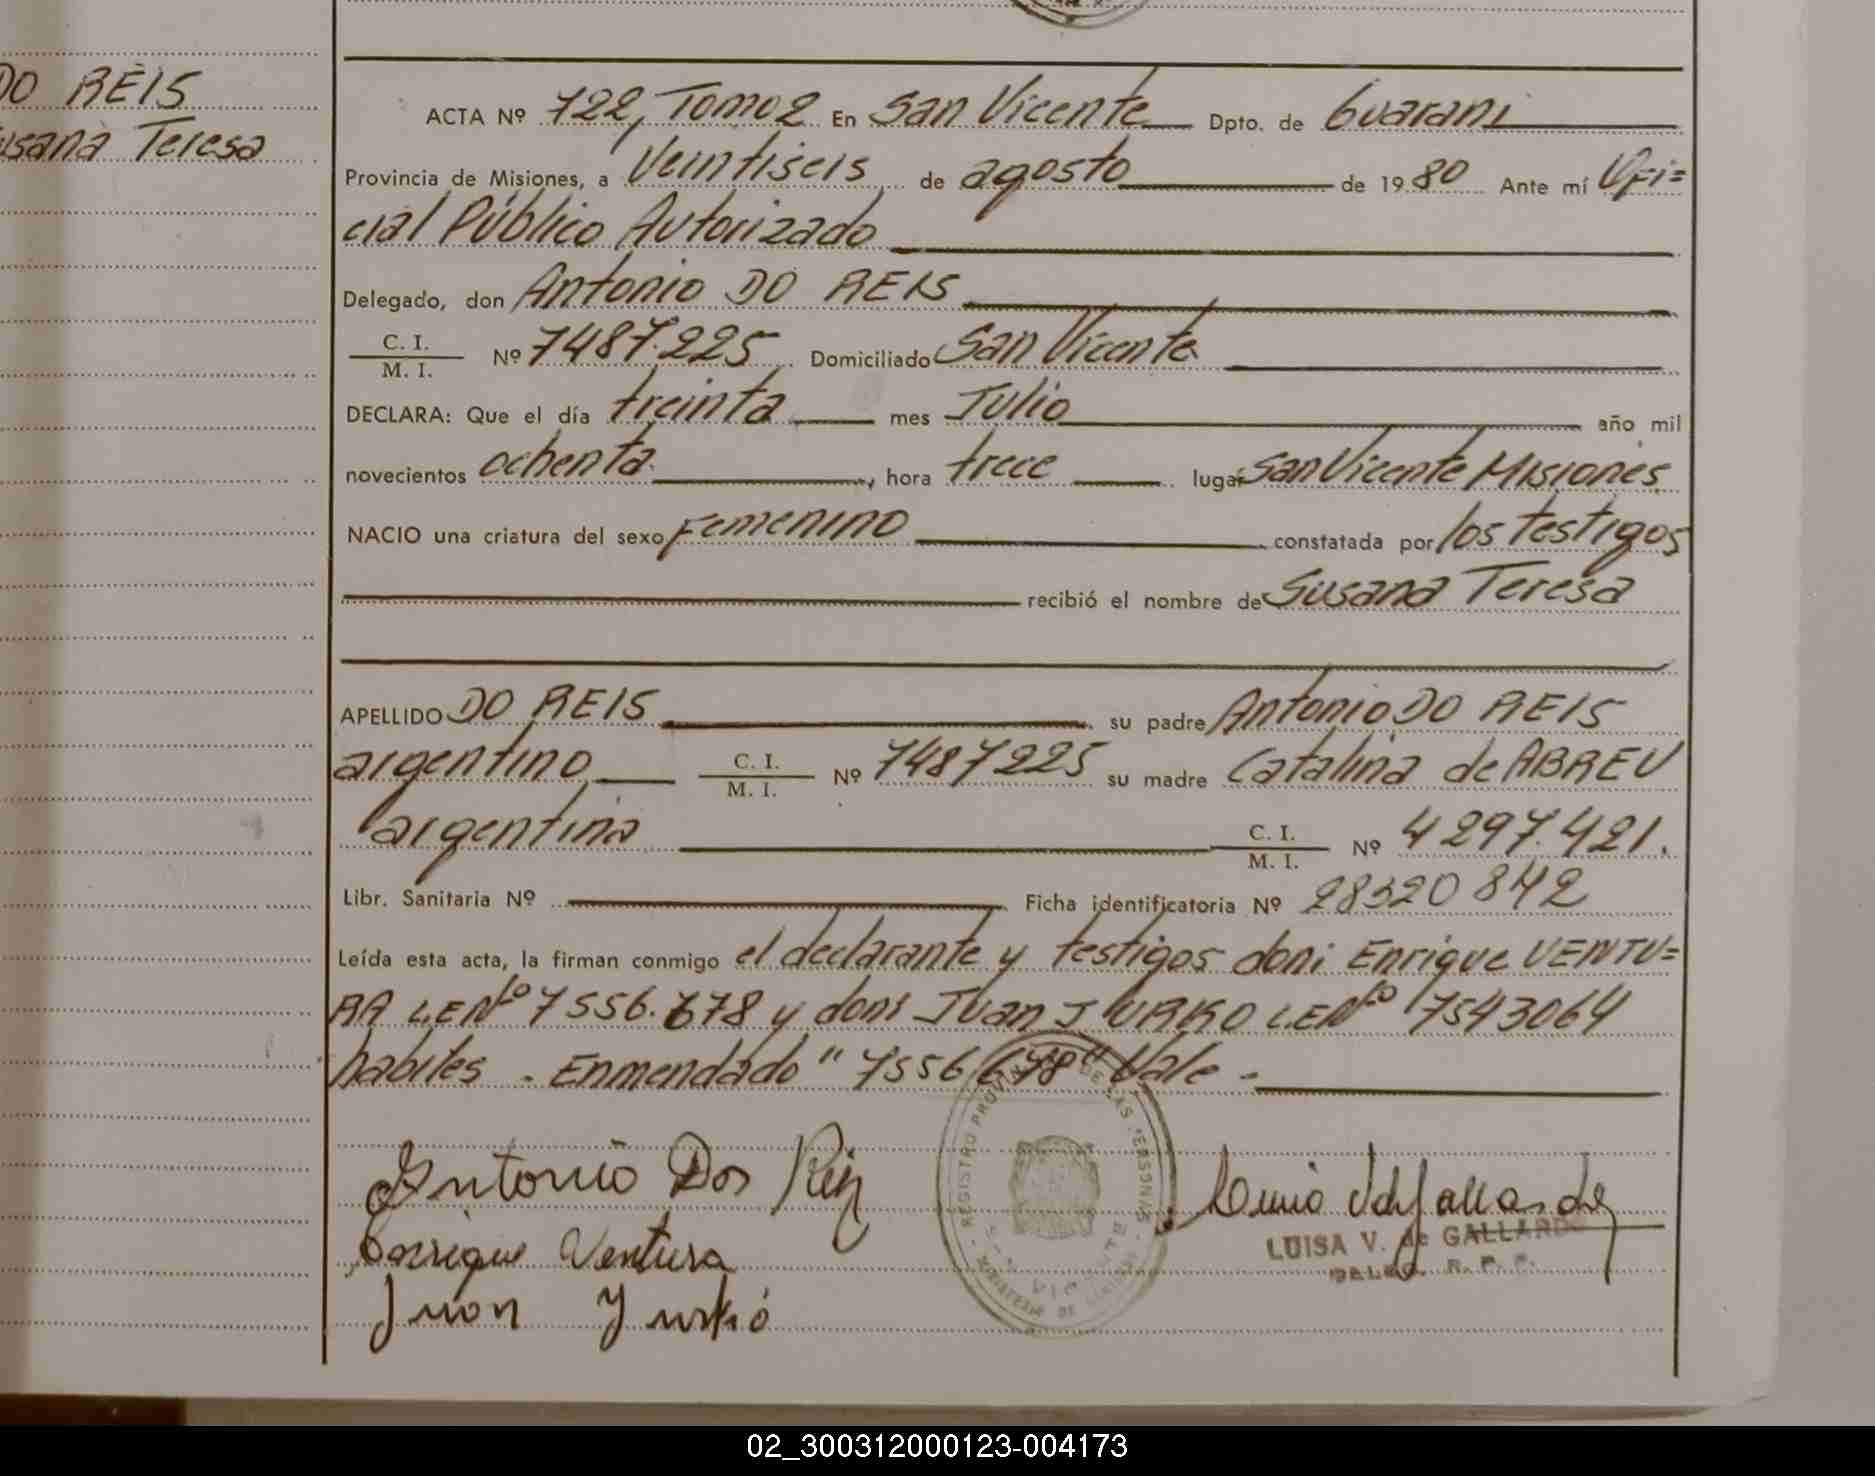 DO REIS
usana Teresa
ACTA Nº 722, Tomo 2 En San Vicente Dpto. de Guarani
Provincia de Misiones, a veintiseis de agosto de 1980 Ante mí Ofi=
cial Público Autorizado
Delegado, don Antonio DO REIS
C. I.
M. I. Nº 7487.225 Domiciliado San Vicente
DECLARA: Que el día treinta mes Julio año mil
novecientos ochenta, hora trece lugar San Vicente Misiones
NACIO una criatura del sexo Femenino constatada por los testigos
recibió el nombre de Susana Teresa
APELLIDO DO REIS su padre Antonio DO REIS
argentino C. I.
M. I. Nº 7487225 su madre Catalina de ABREU
argentina C. I.
M. I. Nº 4297.421.
Libr. Sanitaria Nº Ficha identificatoria Nº 28320842
Leída esta acta, la firman conmigo el declarante y testigos doni Enrique VENTU=
RA L.E Nº 7556.678 y doni Juan JURKO L.E Nº 7543064
habiles - Enmendado "7556678" Vale -
REGISTRO PROVINCIAL DE LAS PERSONAS
SAN VICENTE
MINISTERIO DE
Antonio Dos Reis
Enrique Ventura
Juan Yurkó
LUISA V. de GALLARDO
DELEG. R. P. P.
02_300312000123-004173